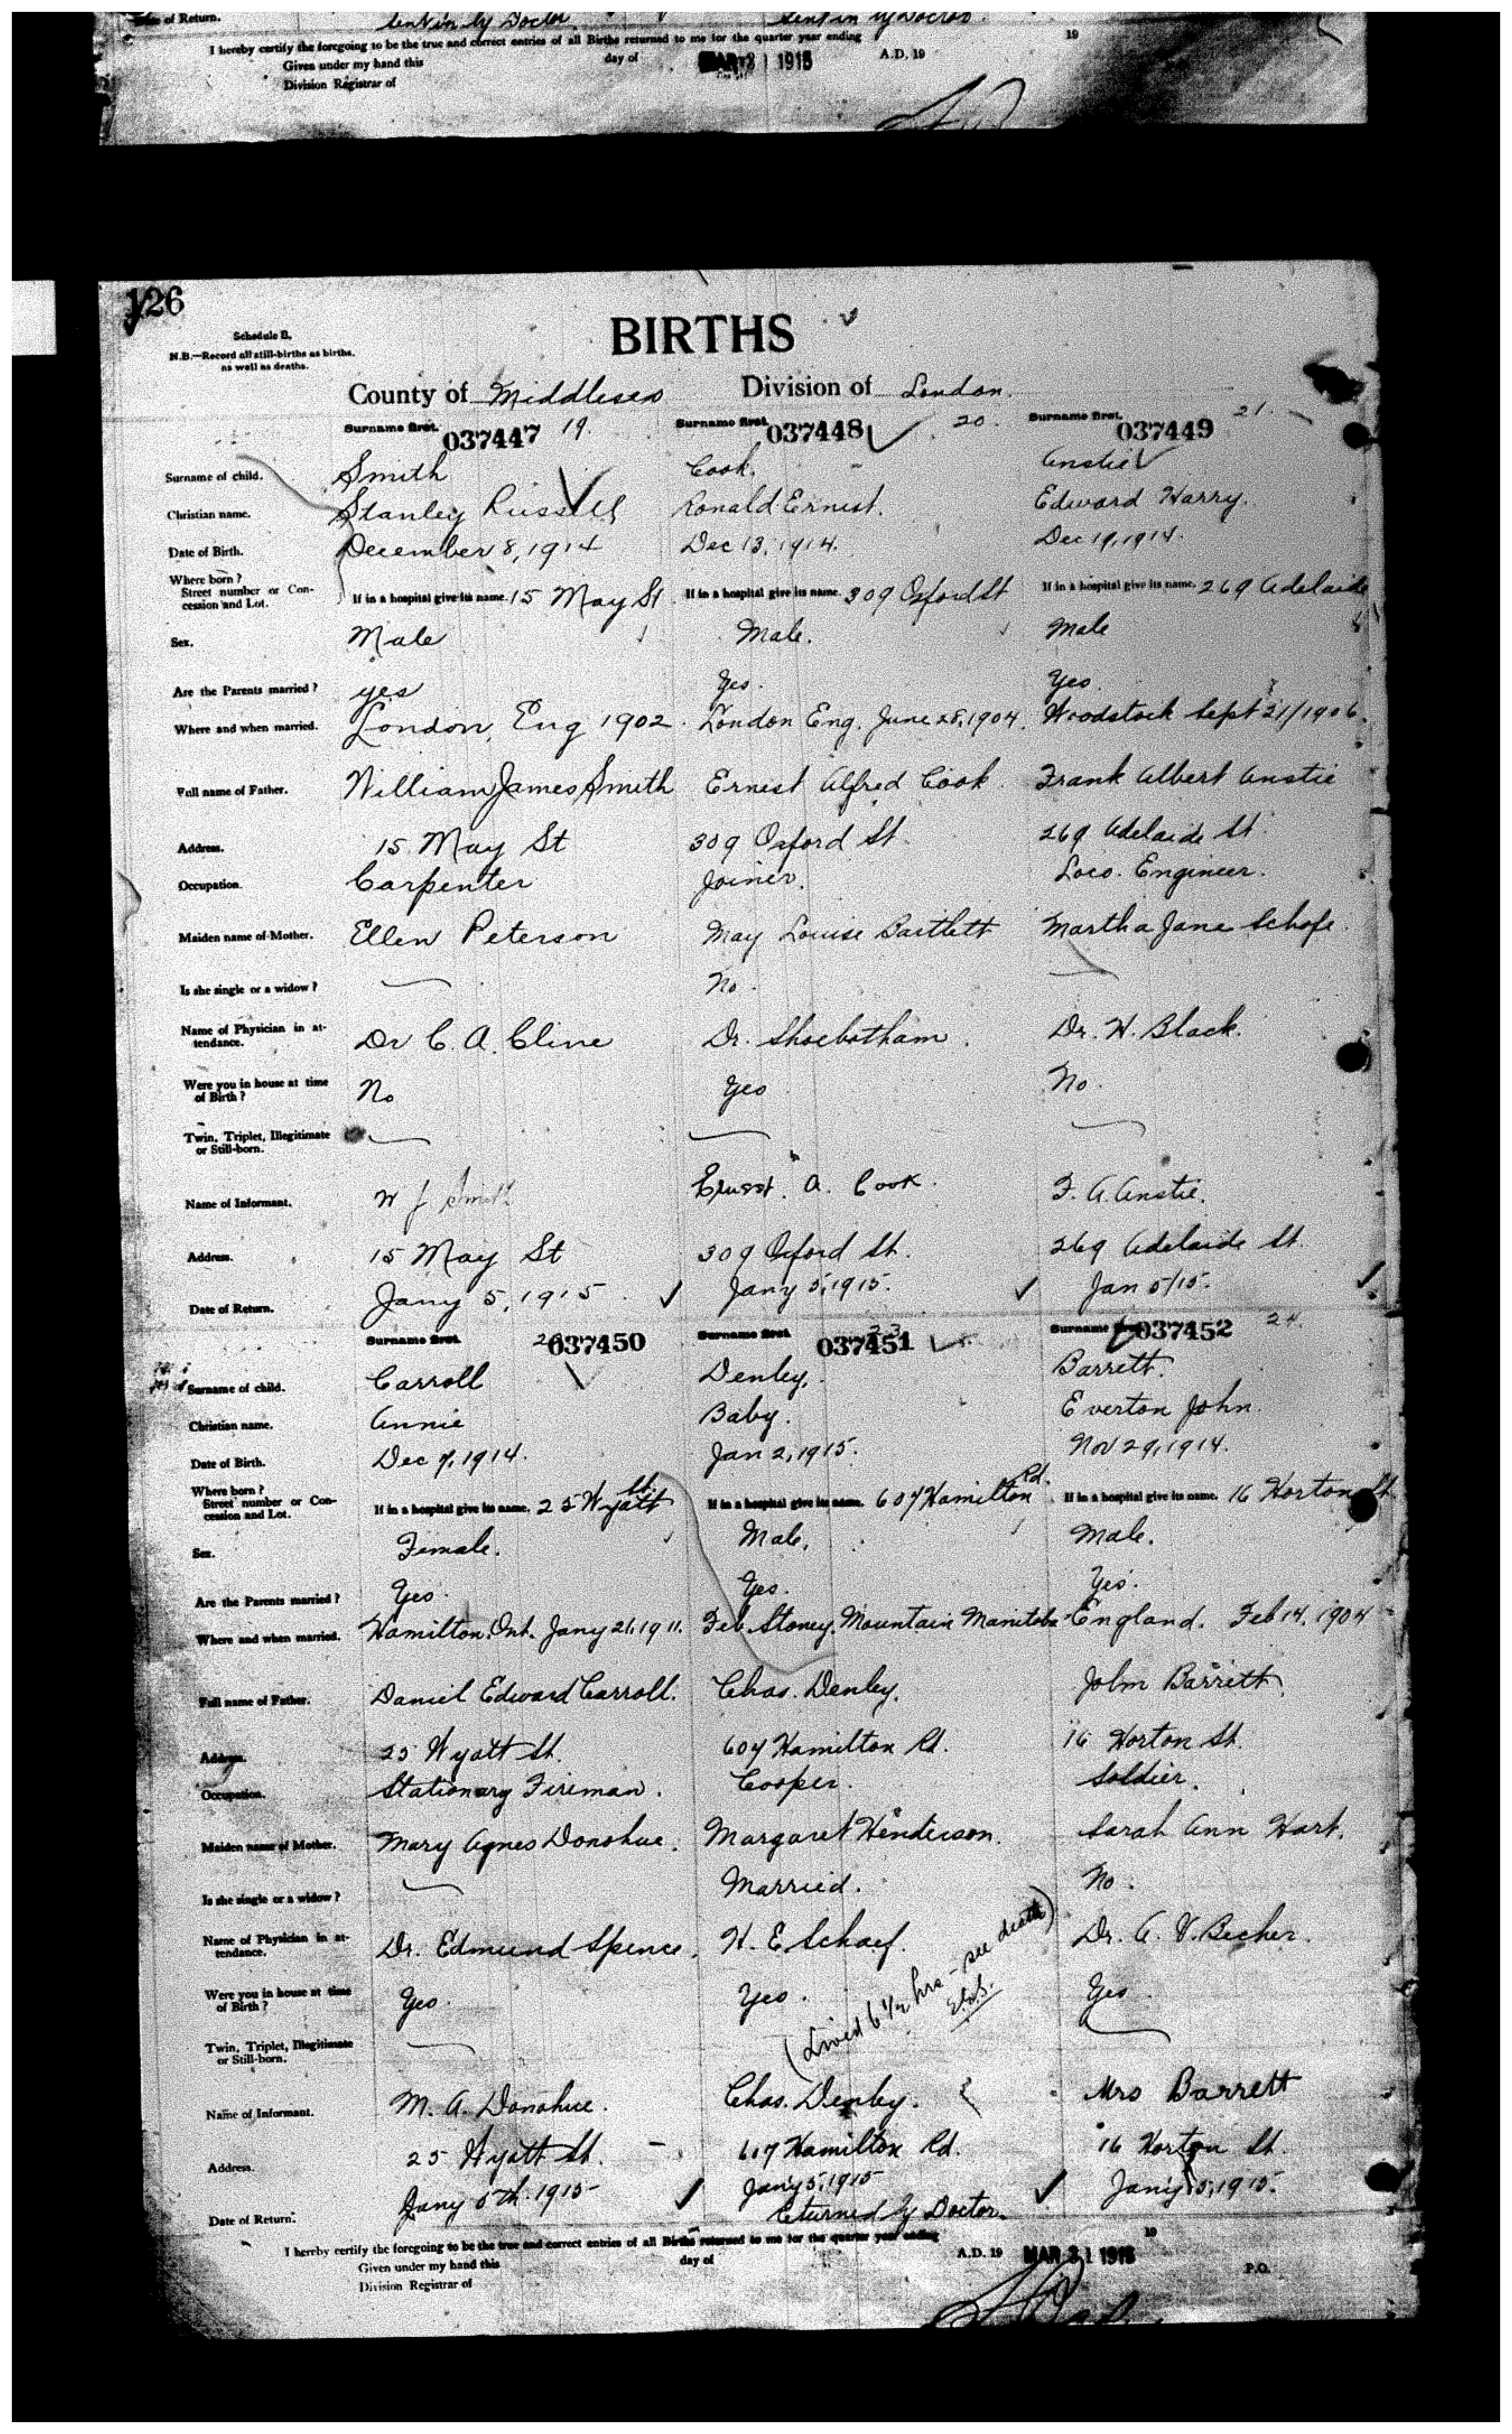 of Return. Sent in by Doctor Sent in by Doctor.
I hereby certify the foregoing to be the true and correct entries of all Births returned to me for the quarter year ending 19
Given under my hand this day of MAR 31 1915 A.D. 19
Division Registrar of
126
Schedule B.
N.B.—Record all still-births as births, as well as deaths.
BIRTHS
County of Middlesex Division of London.
Surname first. 037447 19. Surname first. 037448 20. Surname first. 037449 21.
Surname of child. Smith Cook. Anstie
Christian name. Stanley Russell Ronald Ernest. Edward Harry.
Date of Birth. December 8, 1914 Dec 13, 1914. Dec 19, 1914.
Where born?
Street number or Concession and Lot. If in a hospital give its name. 15 May St If in a hospital give its name. 309 Oxford St If in a hospital give its name. 269 Adelaide
Sex. Male Male. Male
Are the Parents married? yes Yes. Yes.
Where and when married. London, Eng 1902. London Eng. June 28, 1904. Woodstock Sept 21/1906.
Full name of Father. William James Smith Ernest Alfred Cook. Frank Albert Anstie
Address. 15 May St 309 Oxford St. 269 Adelaide St.
Occupation. Carpenter Joiner. Loco. Engineer.
Maiden name of Mother. Ellen Peterson May Louise Bartlett Martha Jane Schofe.
Is she single or a widow? — No. —
Name of Physician in attendance. Dr C. A. Cline Dr. Shoebotham. Dr. H. Black.
Were you in house at time of Birth? No Yes No.
Twin, Triplet, Illegitimate or Still-born. — — —
Name of Informant. W J Smith Ernest. A. Cook. F. A. Anstie.
Address. 15 May St 309 Oxford St. 269 Adelaide St.
Date of Return. Jany 5, 1915. Jany 5, 1915. Jan 5/15.
Surname first. 037450 Surname first. 23 037451 Surname 037452 24.
Surname of child. Carroll Denley. Barrett.
Christian name. Annie Baby. Everton John.
Date of Birth. Dec 7, 1914. Jan 2, 1915. Nov 29, 1914.
Where born?
Street number or Concession and Lot. If in a hospital give its name. 25 Wyatt St. If in a hospital give its name. 607 Hamilton Rd. If in a hospital give its name. 16 Horton St.
Sex. Female. Male. Male.
Are the Parents married? Yes. Yes. Yes.
Where and when married. Hamilton. Ont. Jany 21, 1911. Feb. Stoney. Mountain Manitoba England. Feb 14. 1904
Full name of Father. Daniel Edward Carroll. Chas. Denley. John Barrett.
Address. 25 Wyatt St. 607 Hamilton Rd. 16 Horton St.
Occupation. Stationary Fireman. Cooper. Soldier.
Maiden name of Mother. Mary Agnes Donohue. Margaret Henderson. Sarah Ann Hart.
Is she single or a widow? — Married. No.
Name of Physician in attendance. Dr. Edmund Spence. H. E. Schaef. Dr. A. V. Becher.
Were you in house at time of Birth? Yes. Yes. Yes
(Lived 6 1/2 hrs - see death)
Twin, Triplet, Illegitimate or Still-born. — —
Name of Informant. M. A. Donohue. Chas. Denley. Mrs Barrett
Address. 25 Wyatt St. 617 Hamilton Rd. 16 Horton St.
Date of Return. Jany 5th. 1915 Jany 5, 1915 Jany 5, 1915.
Returned by Doctor.
I hereby certify the foregoing to be the true and correct entries of all Births returned to me for the quarter year ending 19
Given under my hand this day of A.D. 19 MAR 31 1915
Division Registrar of P.O.